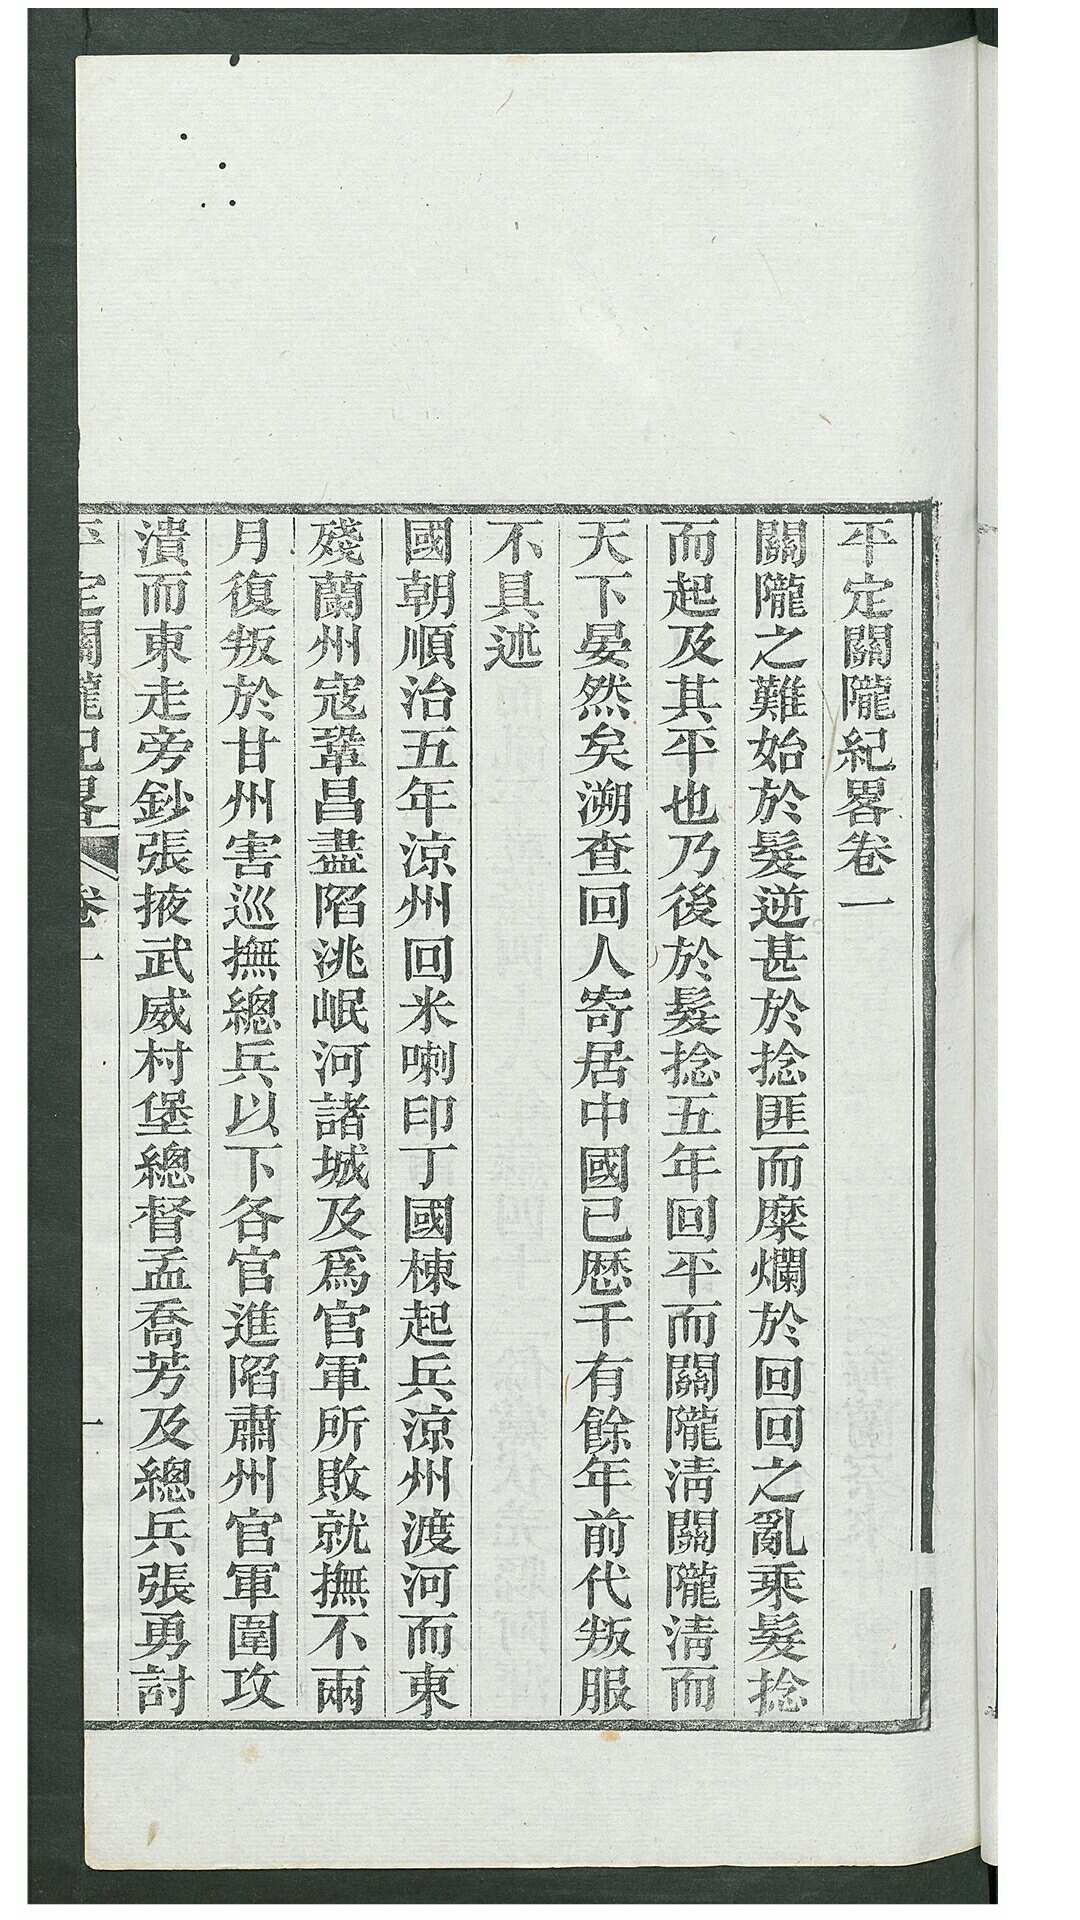 平定關隴紀畧卷一
關隴之難始於髮逆甚於捻匪而糜爛於回回之亂乘髮捻
而起及其平也乃後於髮捻五年回平而關隴淸關隴淸而
天下晏然矣溯查回人寄居中國已歷千有餘年前代叛服
不具述
國朝順治五年涼州回米喇印丁國棟起兵涼州渡河而東
殘蘭州寇鞏昌盡陷洮岷河諸城及爲官軍所敗就撫不兩
月復叛於甘州害巡撫總兵以下各官進陷肅州官軍圍攻
潰而東走旁鈔張掖武威村堡總督孟喬芳及總兵張勇討
平定關隴紀畧 卷一 一